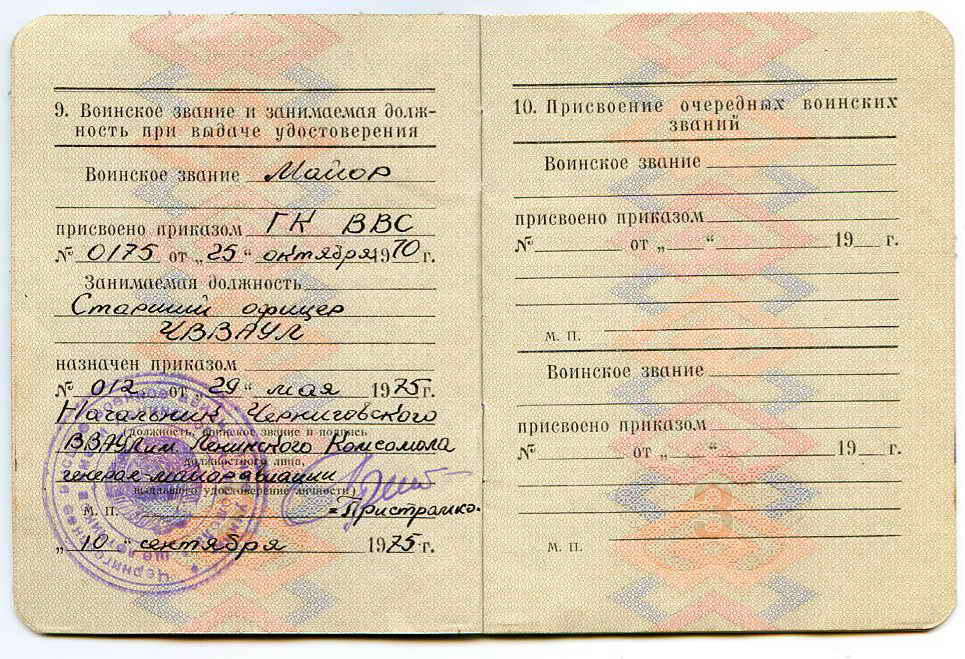 9. Воинское звание и занимаемая долж-
ность при выдаче удостоверения
Воинское звание Майор
присвоено приказом ГК ВВС
№ 0175 от „25“ октября 1970 г.
Занимаемая должность
Старший офицер
ЧВВАУЛ
назначен приказом
№ 012 от „29“ мая 1975 г.
Начальник Черниговского
(должность, воинское звание и подпись
ВВАУЛ им. Ленинского Комсомола
должностного лица,
генерал-майор авиации
выдавшего удостоверение личности)
М. П. =Пристрамко.
„10“ сентября 1975 г.
10. Присвоение очередных воинских
званий
Воинское звание
присвоено приказом
№ от „ “ 19 г.
М. П.
Воинское звание
присвоено приказом
№ от „ “ 19 г.
М. П.